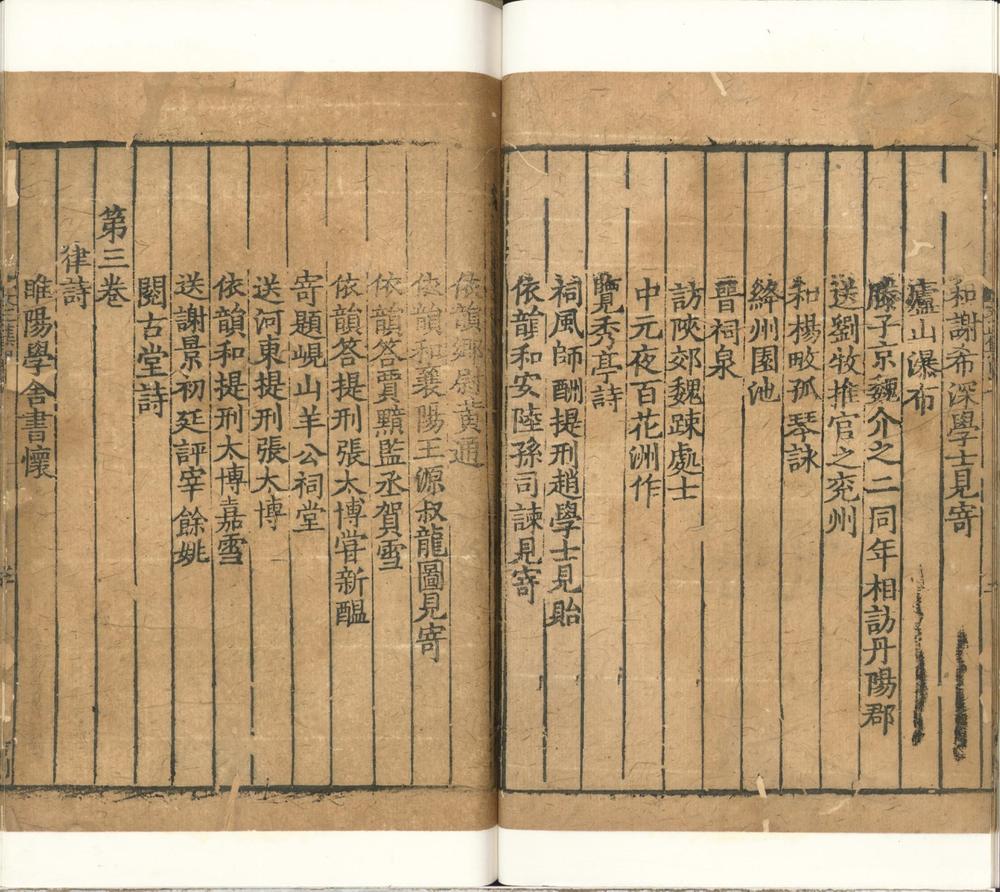 和謝希深學士見寄
廬山瀑布
滕子京魏介之二同年相訪丹陽郡
送劉牧推官之兖州
和楊畋孤琴詠
絳州園池
晉祠泉
訪陝郊魏疎處士
中元夜百花洲作
覽秀亭詩
祠風師酬提刑趙學士見貽
依韻和安陸孫司諫見寄
依韻酬尉黄通
依韻和襄陽王源叔龍圖見寄
依韻答賈黯監丞賀雪
依韻答提刑張太博嘗新醖
寄題峴山羊公祠堂
送河東提刑張大博
依韻和提刑太博嘉雪
送謝景初廷評宰餘姚
閱古堂詩
第三卷
律詩
睢陽學舍書懷